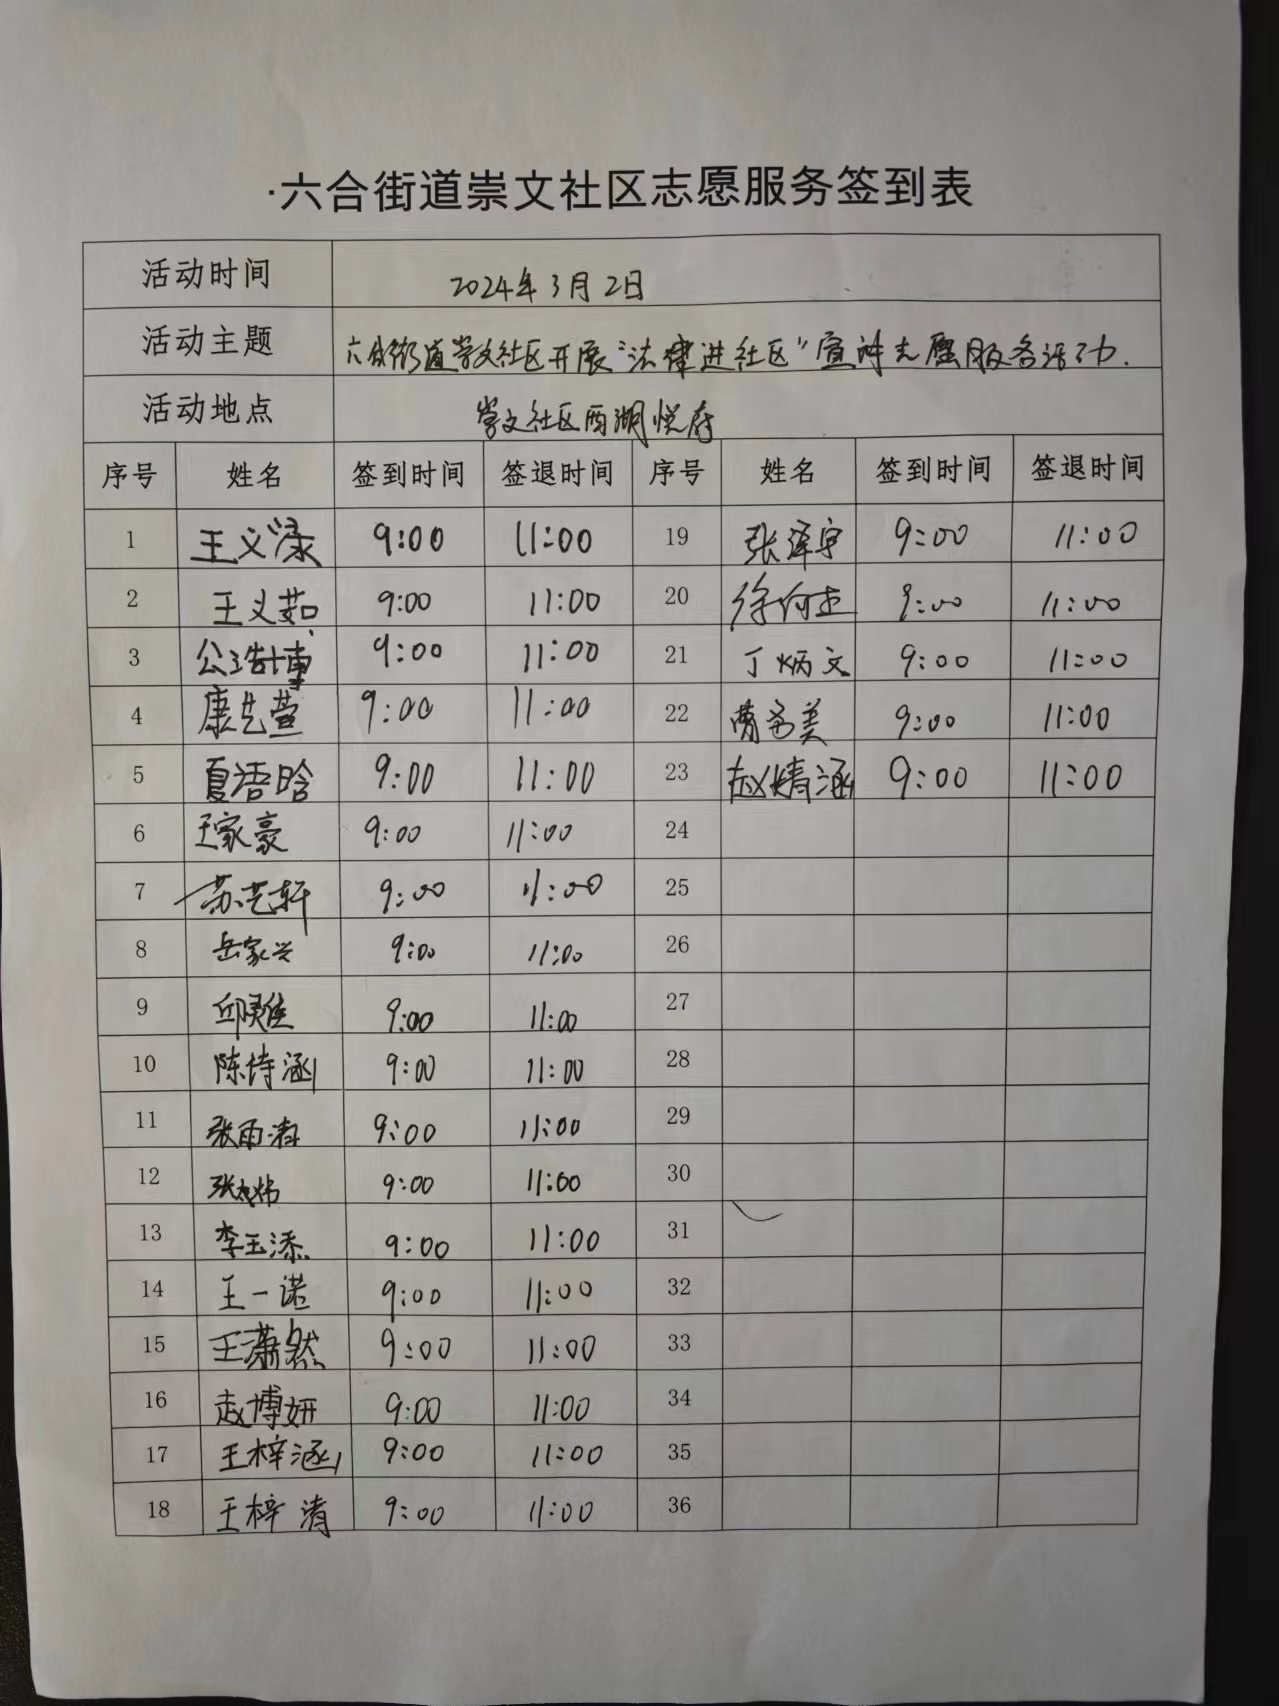 ·六合街道崇文社区志愿服务签到表
活动时间 2024年3月2日
活动主题 六合街道崇文社区开展“法律进社区”宣讲志愿服务活动.
活动地点 崇文社区西湖悦府
序号 姓名 签到时间 签退时间 序号 姓名 签到时间 签退时间
1 王义渌 9:00 11:00 19 张泽宇 9:00 11:00
2 王义茹 9:00 11:00 20 9:00 11:00
3 公浩博 9:00 11:00 21 丁炳文 9:00 11:00
4 康艺萱 9:00 11:00 22 9:00 11:00
5 夏语晗 9:00 11:00 23 赵婧涵 9:00 11:00
6 王家豪 9:00 11:00 24
7 苏艺轩 9:00 11:00 25
8 岳家兴 9:00 11:00 26
9 9:00 11:00 27
10 陈诗涵 9:00 11:00 28
11 张雨清 9:00 11:00 29
12 9:00 11:00 30
13 李玉添 9:00 11:00 31
14 王一诺 9:00 11:00 32
15 王潇然 9:00 11:00 33
16 赵博妍 9:00 11:00 34
17 王梓涵 9:00 11:00 35
18 王梓清 9:00 11:00 36